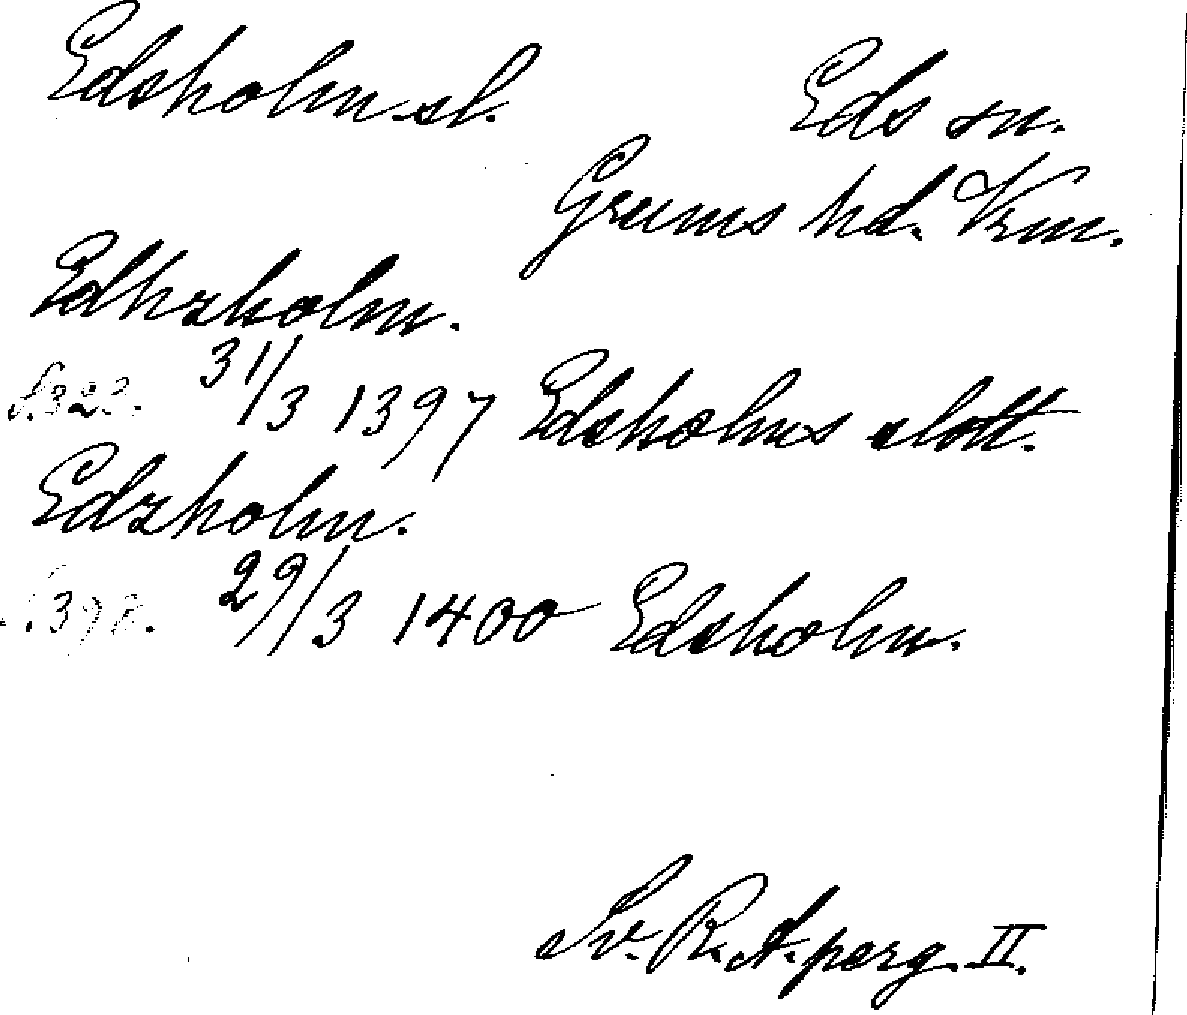 Edsholm. sl. Eds sn.
Grums hd. Vrm.
Edhzholm.
S. 322. 31/3 1397 Edsholms slott.
Edzholm.
S. 398. 29/3 1400 Edsholm.
Sv. R. A. perg. II.